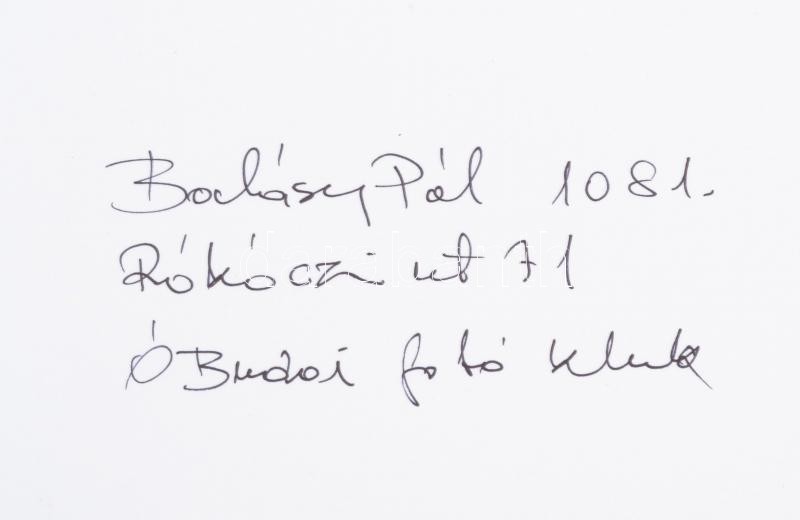 Bodásy Pál 1081.
Rákóczi ut 71
ÓBudai fotó klub